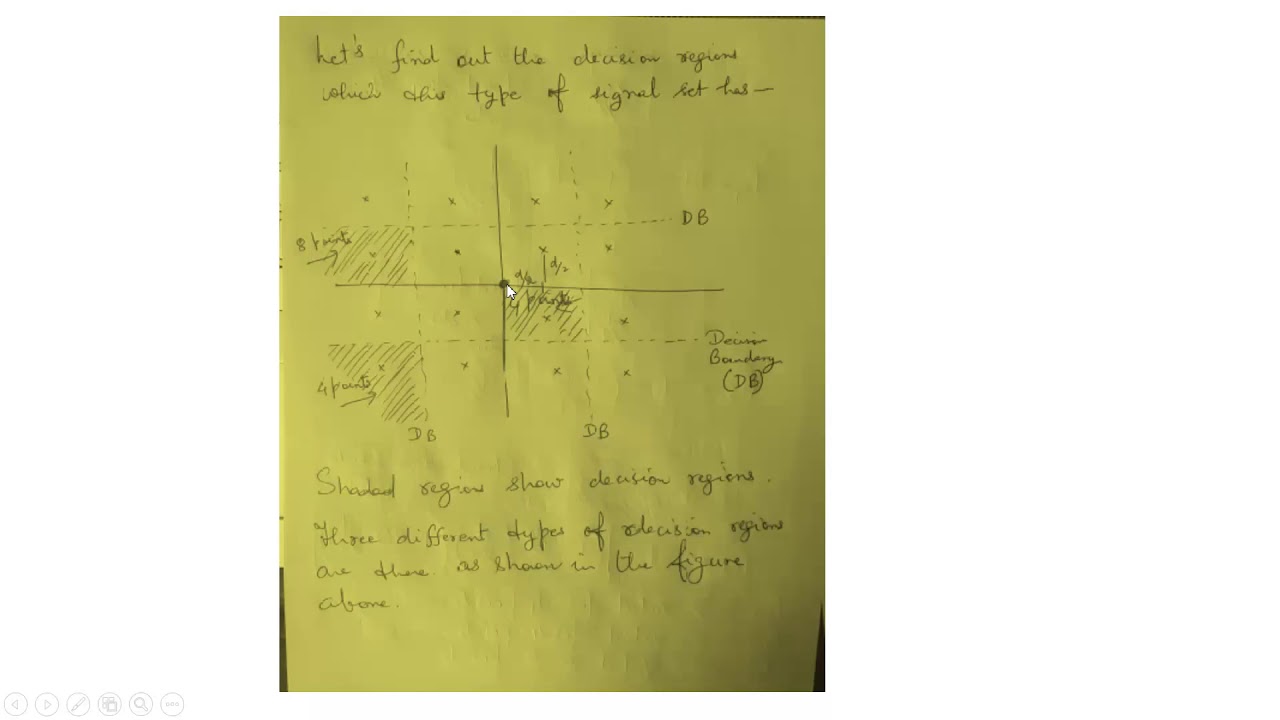 Let's find out the decision regions
which this type of signal set has—
DB
8 points
d/2
d/2
4 points
Decision
Boundary
(DB)
4 points
DB
DB
Shaded regions show decision regions.
Three different types of decision regions
are there as shown in the figure
above.